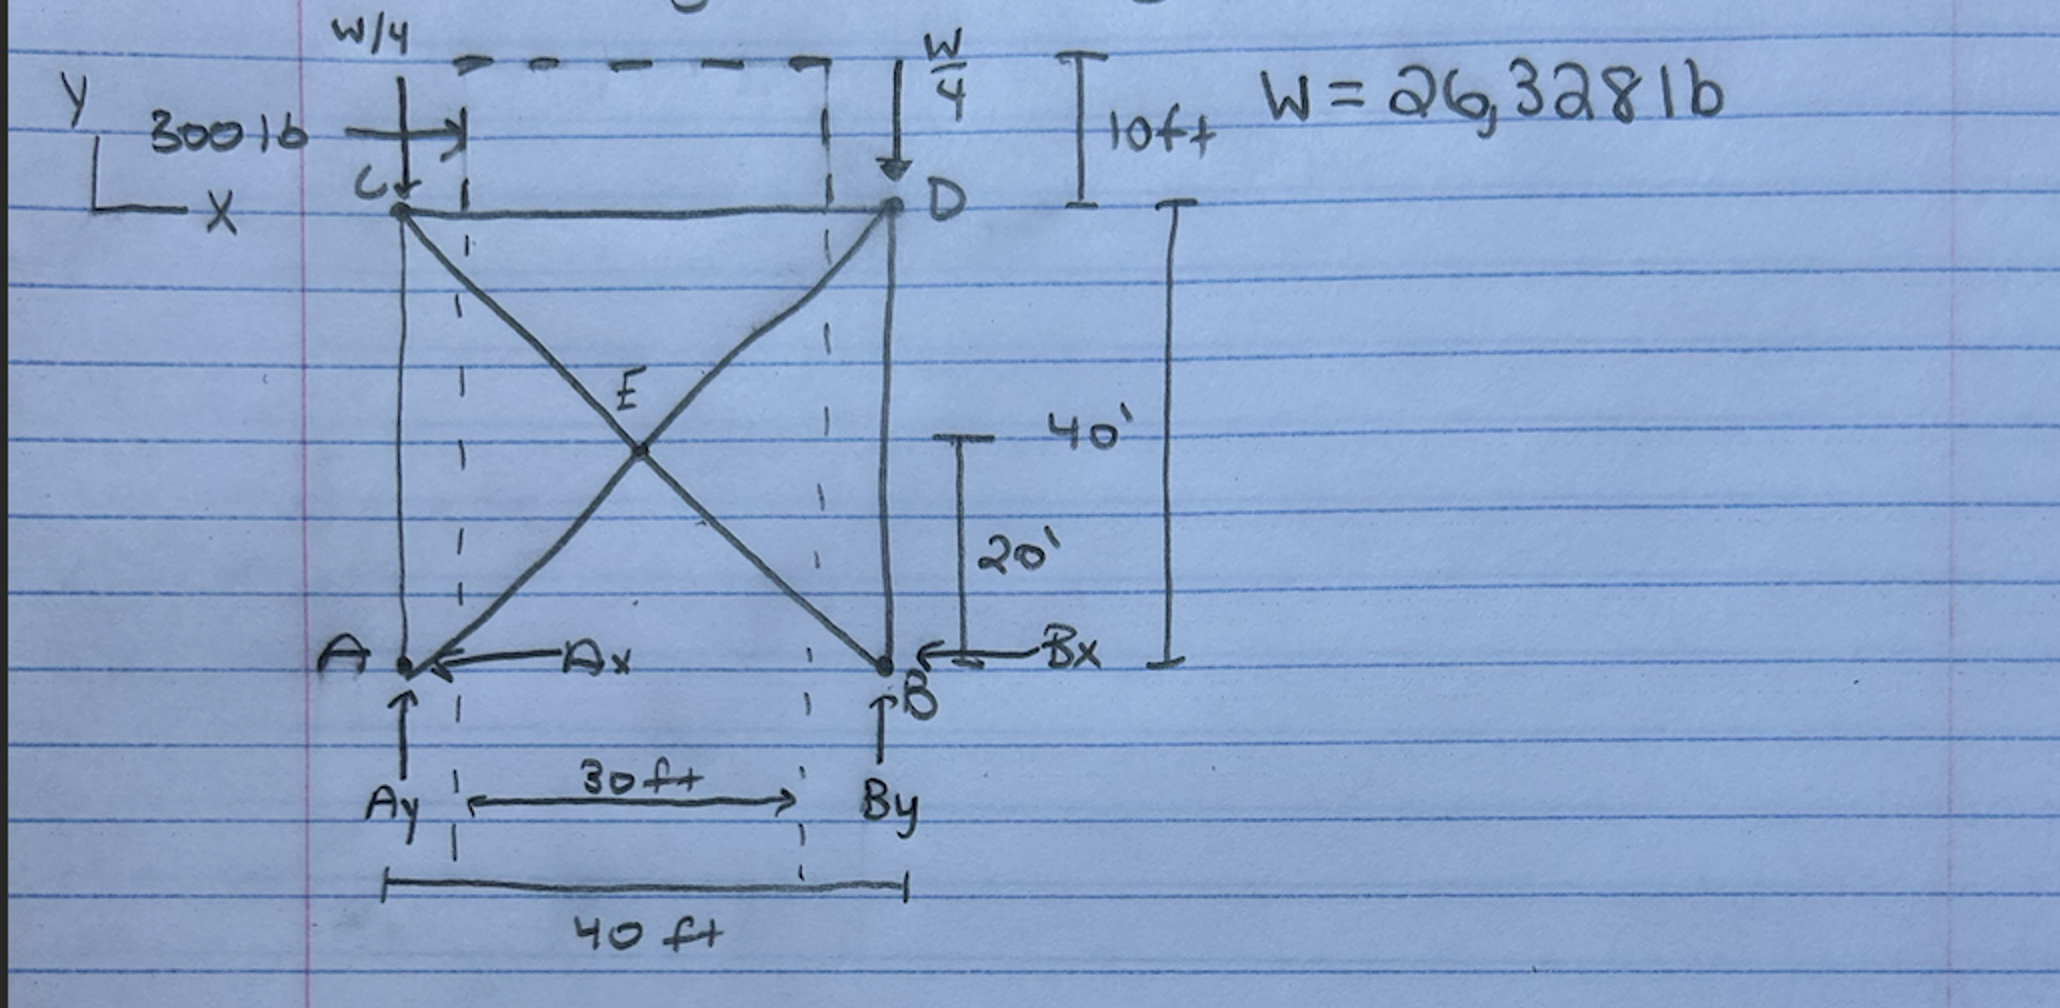 W/4
W/4
W = 26,328 lb
Y
300 lb
10ft
X
C
D
E
40'
20'
A
Ax
Bx
B
Ay
30 ft
By
40 ft